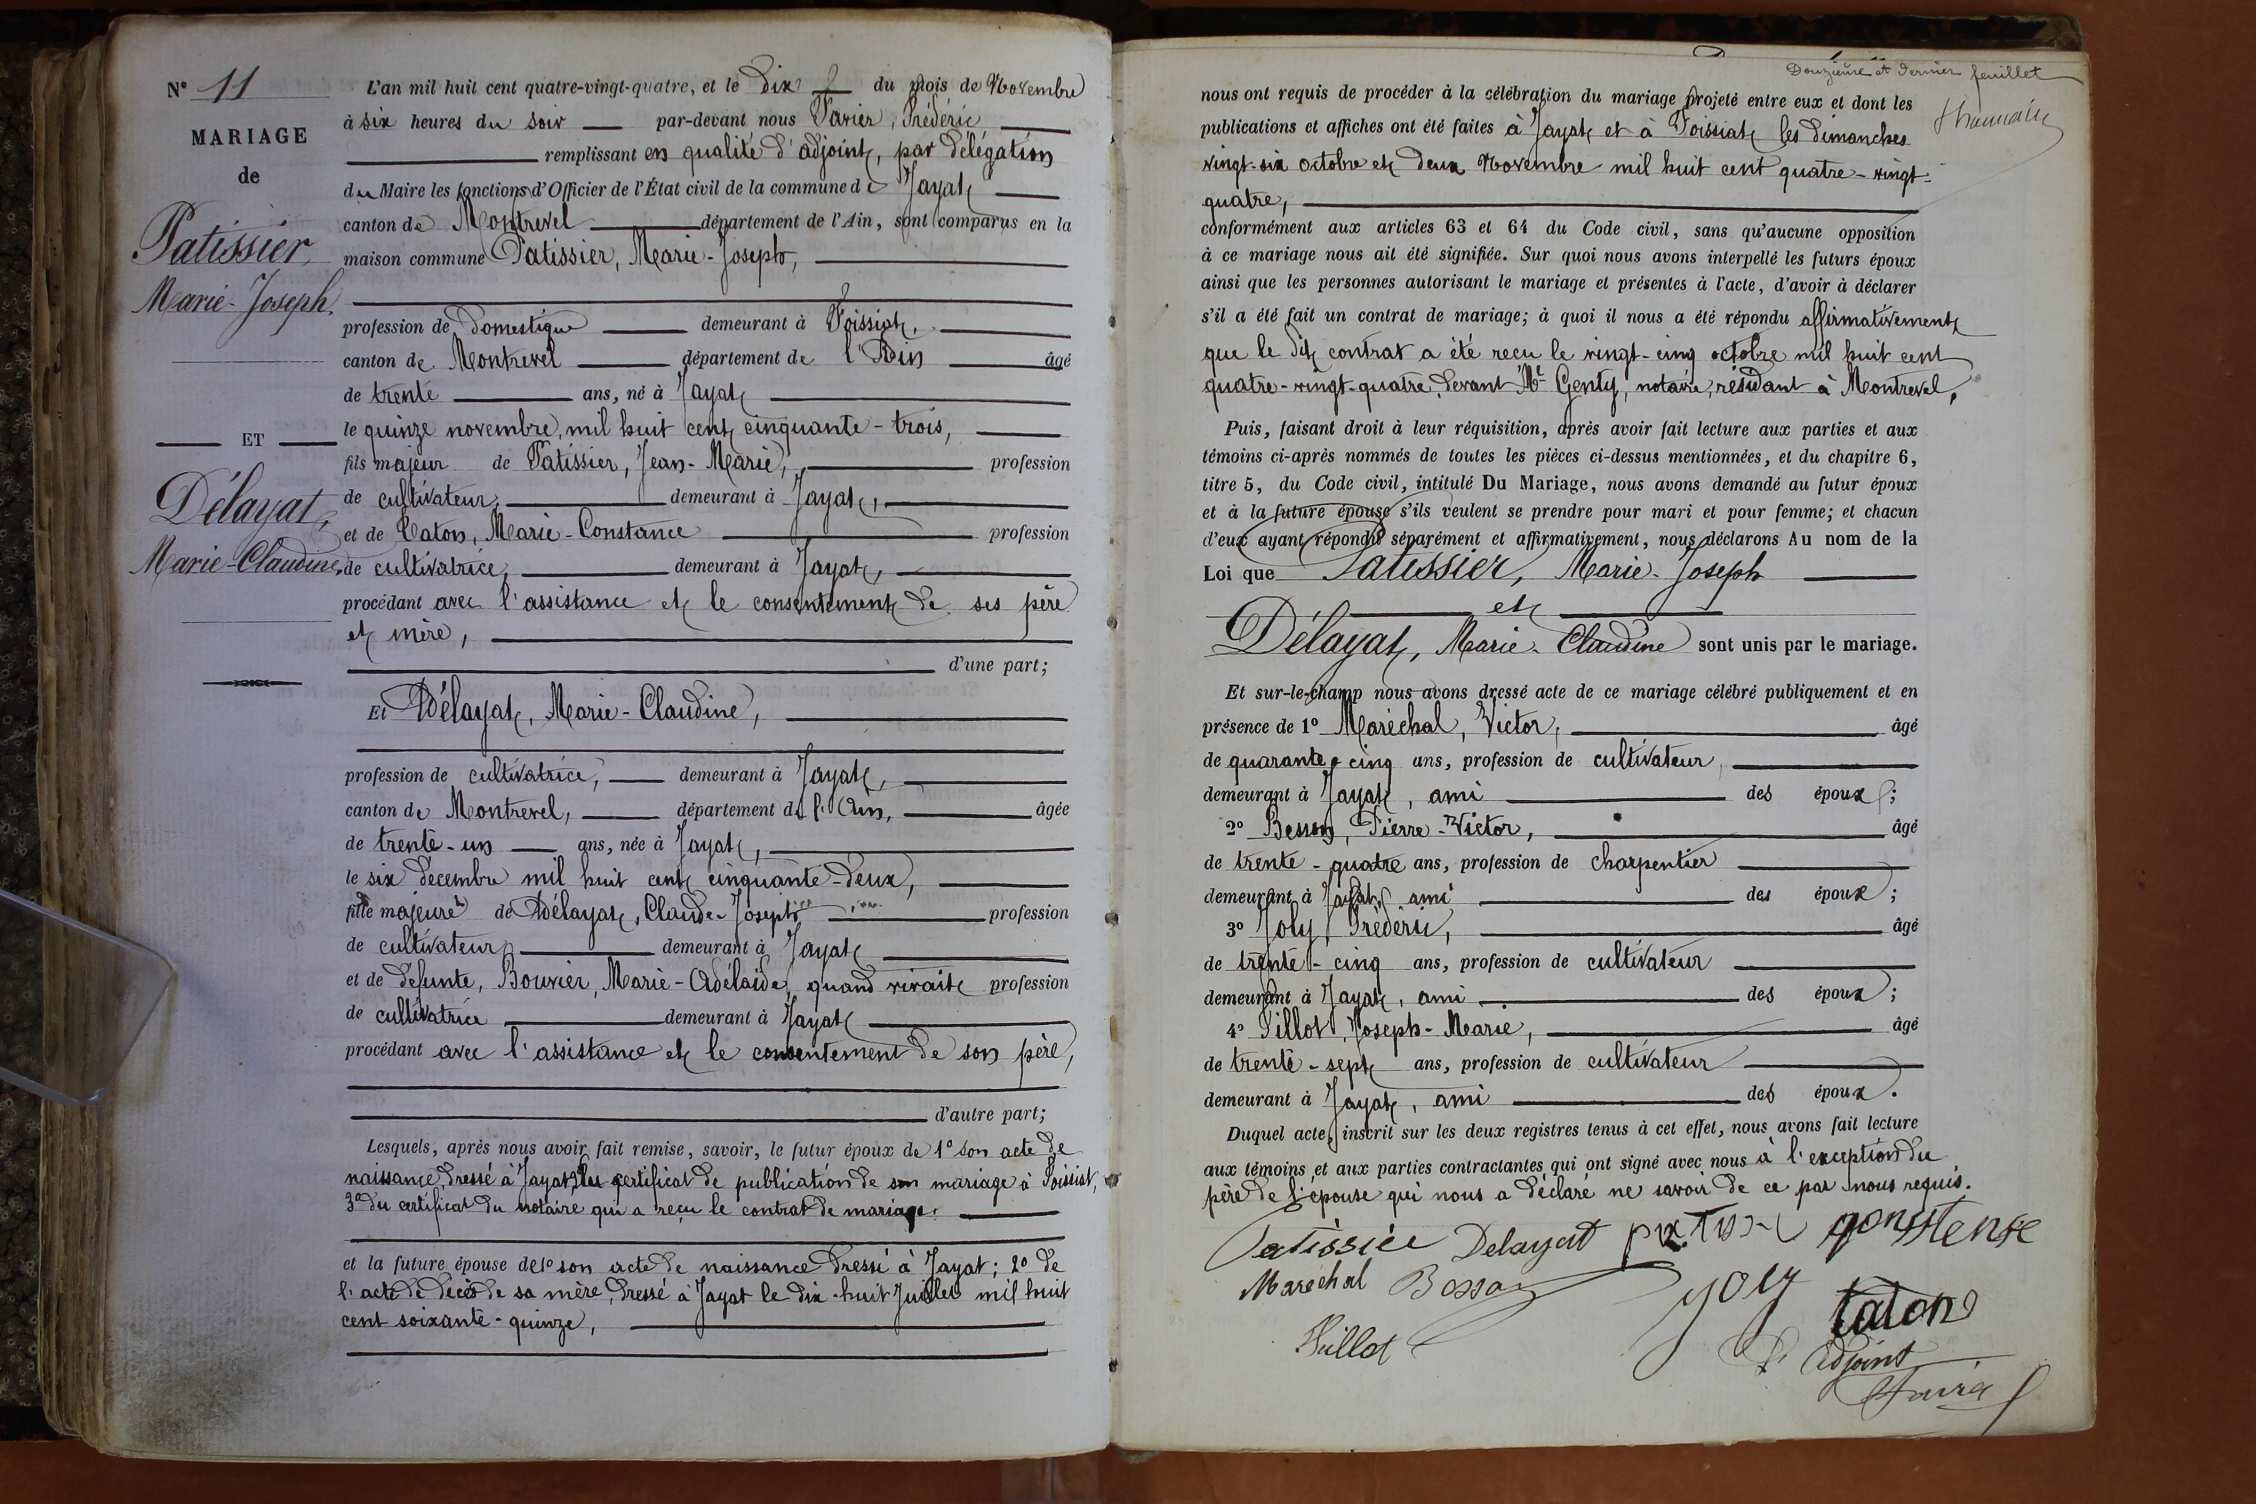 N° 11
MARIAGE
de
Patissier,
Marie-Joseph.
ET
Délayat,
Marie-Claudine,
L'an mil huit cent quatre-vingt-quatre, et le dix du mois de Novembre
à six heures du soir par-devant nous Favier, Frédéric
remplissant en qualité d'adjoint, par délégation
du Maire les fonctions d'Officier de l'État civil de la commune de Jayat
canton de Montrevel département de l'Ain, sont comparus en la
maison commune Patissier, Marie-Joseph,
profession de domestique demeurant à Foissiat,
canton de Montrevel département de l'Ain âgé
de trente ans, né à Jayat
le quinze novembre, mil huit cent cinquante-trois,
fils majeur de Patissier, Jean-Marie, profession
de cultivateur, demeurant à Jayat,
et de Caton, Marie-Constance profession
de cultivatrice, demeurant à Jayat,
procédant avec l'assistance et le consentement de ses père
et mère,
d'une part;
Et Délayat, Marie-Claudine,
profession de cultivatrice, demeurant à Jayat,
canton de Montrevel, département de l'Ain, âgée
de trente-un ans, née à Jayat,
le six décembre mil huit cent cinquante-deux,
fille majeure de Délayat, Claude-Joseph profession
de cultivateur demeurant à Jayat
et de défunte, Bouvier, Marie-Adélaide, quand vivait profession
de cultivatrice demeurant à Jayat
procédant avec l'assistance et le consentement de son père,
d'autre part;
Lesquels, après nous avoir fait remise, savoir, le futur époux de 1° son acte de
naissance, dressé à Jayat, 2° du certificat de publication de son mariage à Foissiat,
3° du certificat du notaire qui a reçu le contrat de mariage.
et la future épouse de 1° son acte de naissance dressé à Jayat; 2° de
l'acte de décès de sa mère, dressé à Jayat le dix-huit Juillet mil huit
cent soixante-quinze,
Douzième et dernier feuillet
nous ont requis de procéder à la célébration du mariage projeté entre eux et dont les
publications et affiches ont été faites à Jayat et à Foissiat les dimanches
vingt-six octobre et deux Novembre mil huit cent quatre-vingt-
quatre,
conformément aux articles 63 et 64 du Code civil, sans qu'aucune opposition
à ce mariage nous ait été signifiée. Sur quoi nous avons interpellé les futurs époux
ainsi que les personnes autorisant le mariage et présentes à l'acte, d'avoir à déclarer
s'il a été fait un contrat de mariage; à quoi il nous a été répondu affirmativement
que le dit contrat a été reçu le vingt-cinq octobre mil huit cent
quatre-vingt-quatre, devant Me Genty, notaire, résidant à Montrevel,
Puis, faisant droit à leur réquisition, après avoir fait lecture aux parties et aux
témoins ci-après nommés de toutes les pièces ci-dessus mentionnées, et du chapitre 6,
titre 5, du Code civil, intitulé Du Mariage, nous avons demandé au futur époux
et à la future épouse s'ils veulent se prendre pour mari et pour femme; et chacun
d'eux ayant répondu séparément et affirmativement, nous déclarons Au nom de la
Loi que Patissier, Marie-Joseph
et
Délayat, Marie-Claudine sont unis par le mariage.
Et sur-le-champ nous avons dressé acte de ce mariage célébré publiquement et en
présence de 1° Maréchal, Victor, âgé
de quarante-cinq ans, profession de cultivateur,
demeurant à Jayat, ami des époux;
2° Besson, Pierre-Victor, âgé
de trente-quatre ans, profession de charpentier
demeurant à Jayat, ami des époux;
3° Joly, Frédéric, âgé
de trente-cinq ans, profession de cultivateur
demeurant à Jayat, ami des époux;
4° Pillot, Joseph-Marie, âgé
de trente-sept ans, profession de cultivateur
demeurant à Jayat, ami des époux.
Duquel acte, inscrit sur les deux registres tenus à cet effet, nous avons fait lecture
aux témoins et aux parties contractantes qui ont signé avec nous à l'exception du
père de l'épouse qui nous a déclaré ne savoir de ce par nous requis.
Patissiée Delayat qonstense
Maréchal Besson Joly taton
Pillot
L'adjoint
Favier